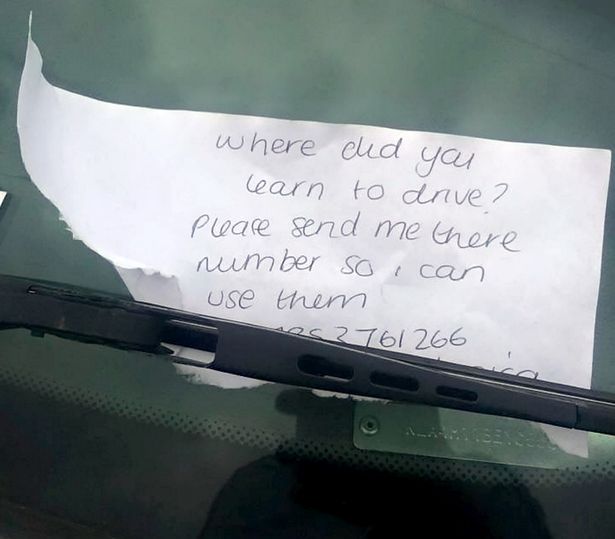 where did you
learn to drive?
Please send me there
number so i can
use them
3761266